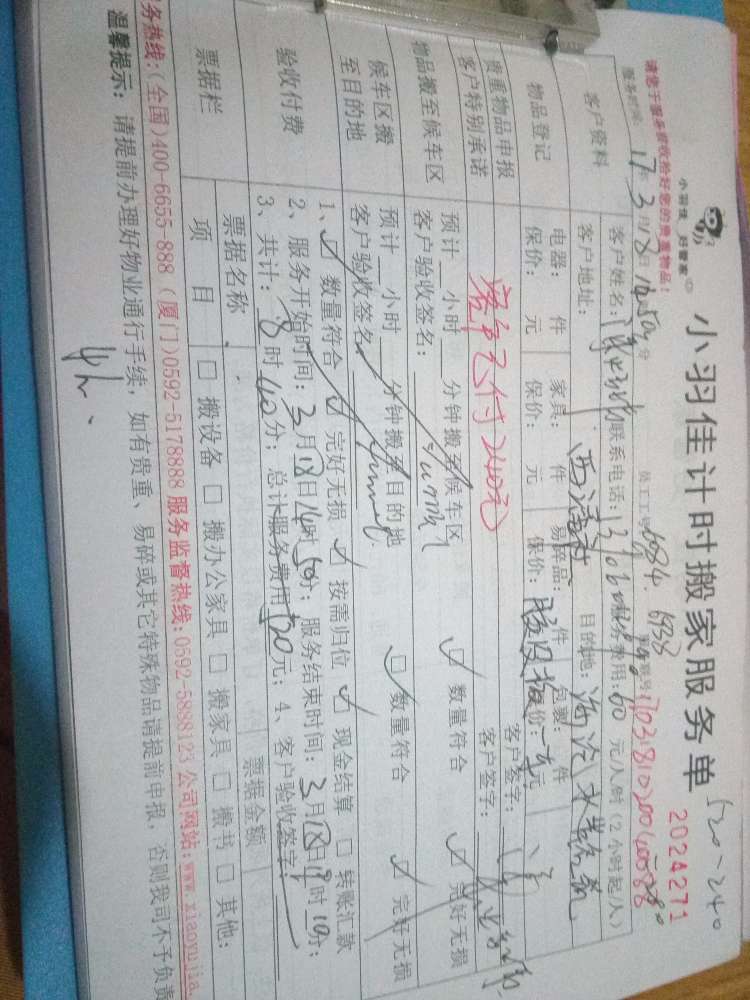 520-240
小羽佳计时搬家服务单
2024271
小羽佳 好管家
请您于服务前收拾好您的贵重物品！
服务时间：17年3月18日14时50分 员工工号：6084. 6938
客户资料
客户姓名： 联系电话： 服务费用：60 元/人/时（2小时起/人）
客户地址： 西浦村 目的地：
物品登记
电器： 件 家具： 件 易碎品： 件 包裹： 件
保价： 元 保价： 元 保价： 元 保价： 元
贵重物品申报
客户特别承诺
客户签字：
客户签字：
客户已付240元
物品搬至候车区
预计 小时 分钟搬至候车区 数量符合 完好无损
客户验收签名：
候车区搬
至目的地
预计 小时 分钟搬至目的地 数量符合 完好无损
客户验收签名：
验收付费
1、 数量符合 完好无损 按需归位 现金结算 转账汇款
2、服务开始时间：3月18日14时50分；服务结束时间：3月18日19时10分；
3、共计：8时40分；总计服务费用520元；4、客户验收签字：
票据栏
票据名称 票据金额
项 目 搬设备 搬办公家具 搬家具 搬书 其他：
服务热线：(全国)400-6655-888（厦门)0592-5178888 服务监督热线：0592-5888123 公司网站：www.xiaoyujia.
温馨提示：请提前办理好物业通行手续，如有贵重、易碎或其它特殊物品请提前申报，否则我司不予负责
4h、